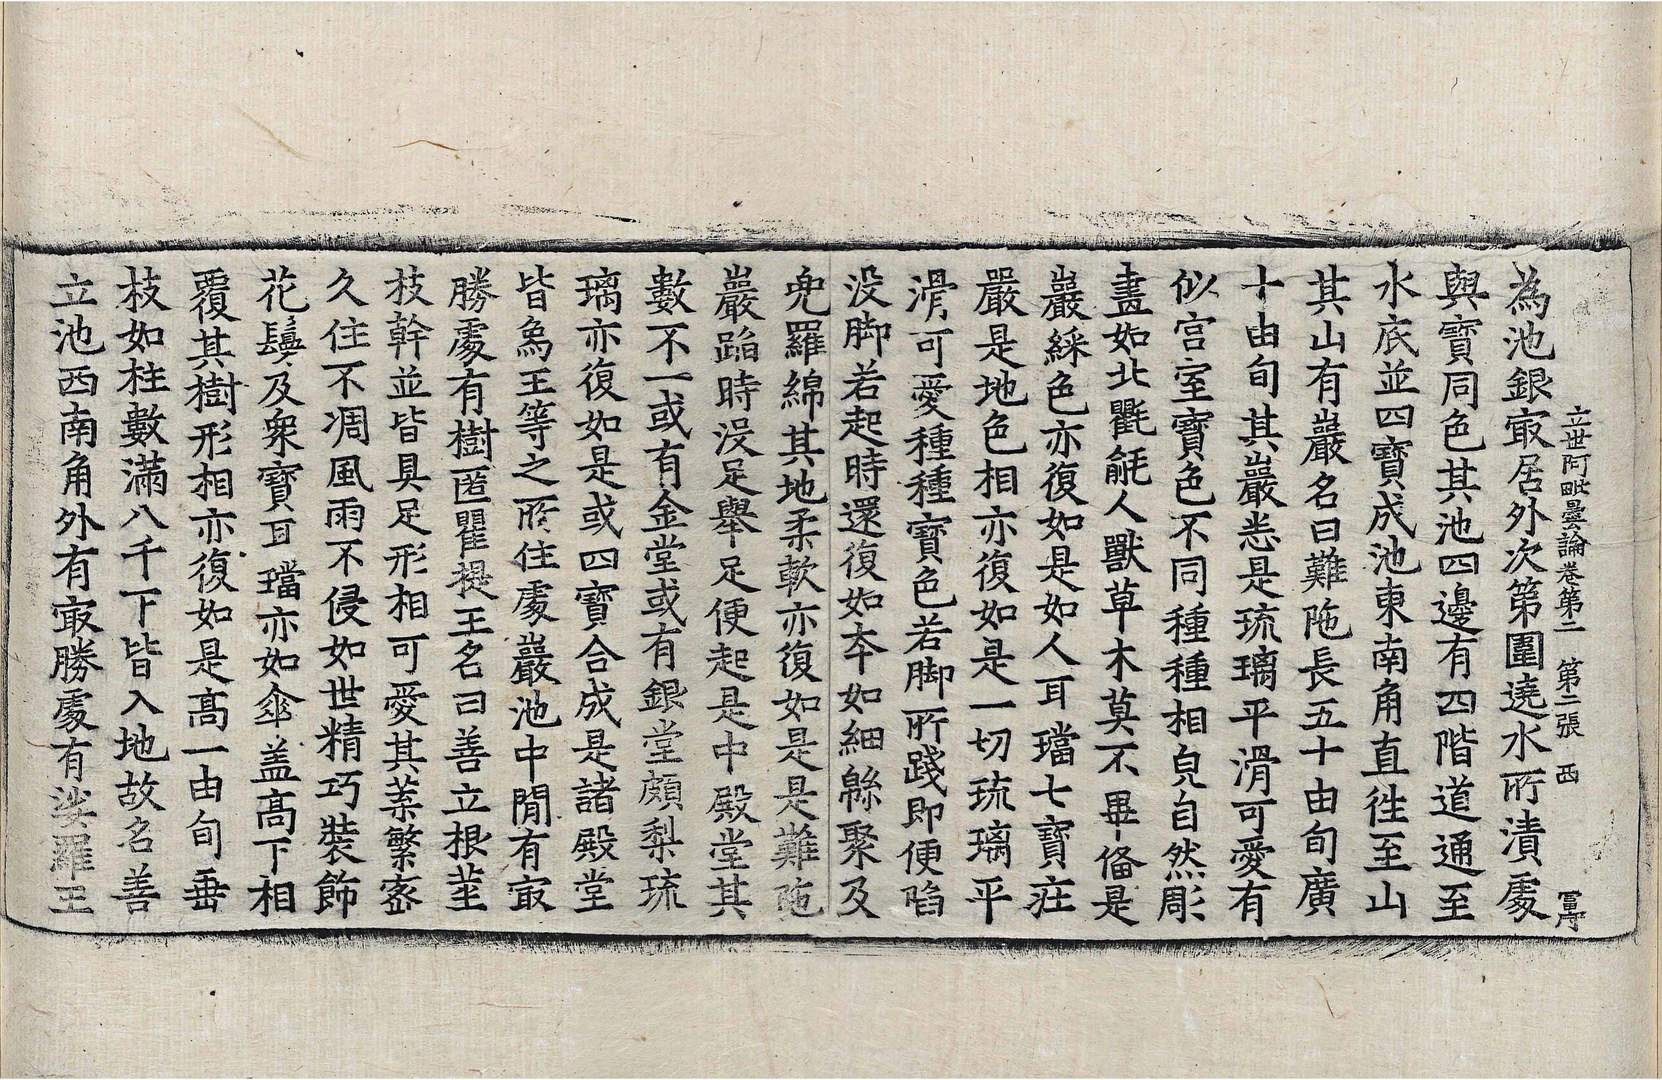 立世阿毗曇論卷第二　第二張　西　冨序
為池銀㝡居外次第圍遶水所漬處
與寶同色其池四邊有四階道通至
水底並四寶成池東南角直徃至山
其山有巖名曰難陁長五十由旬廣
十由旬其巖悉是琉璃平滑可愛有
似宮室寶色不同種種相皃自然彫
畫如北氍毹人獸草木莫不畢俻是
巖綵色亦復如是如人耳璫七寶莊
嚴是地色相亦復如是一切琉璃平
滑可愛種種寶色若脚所踐即便陷
没脚若起時還復如夲如細緜聚及
兜羅綿其地柔軟亦復如是是難陁
巖蹈時没足舉足便起是中殿堂其
數不一或有金堂或有銀堂頗梨琉
璃亦復如是或四寶合成是諸殿堂
皆爲王等之所住處巖池中間有㝡
勝處有樹匿瞿提王名曰善立根莖
枝幹並皆具足形相可愛其葉繁宻
久住不凋風雨不侵如世精巧裝飾
花鬘及衆寶耳璫亦如傘盖髙下相
覆其樹形相亦復如是髙一由旬垂
枝如柱數滿八千下皆入地故名善
立池西南角外有㝡勝處有娑羅王